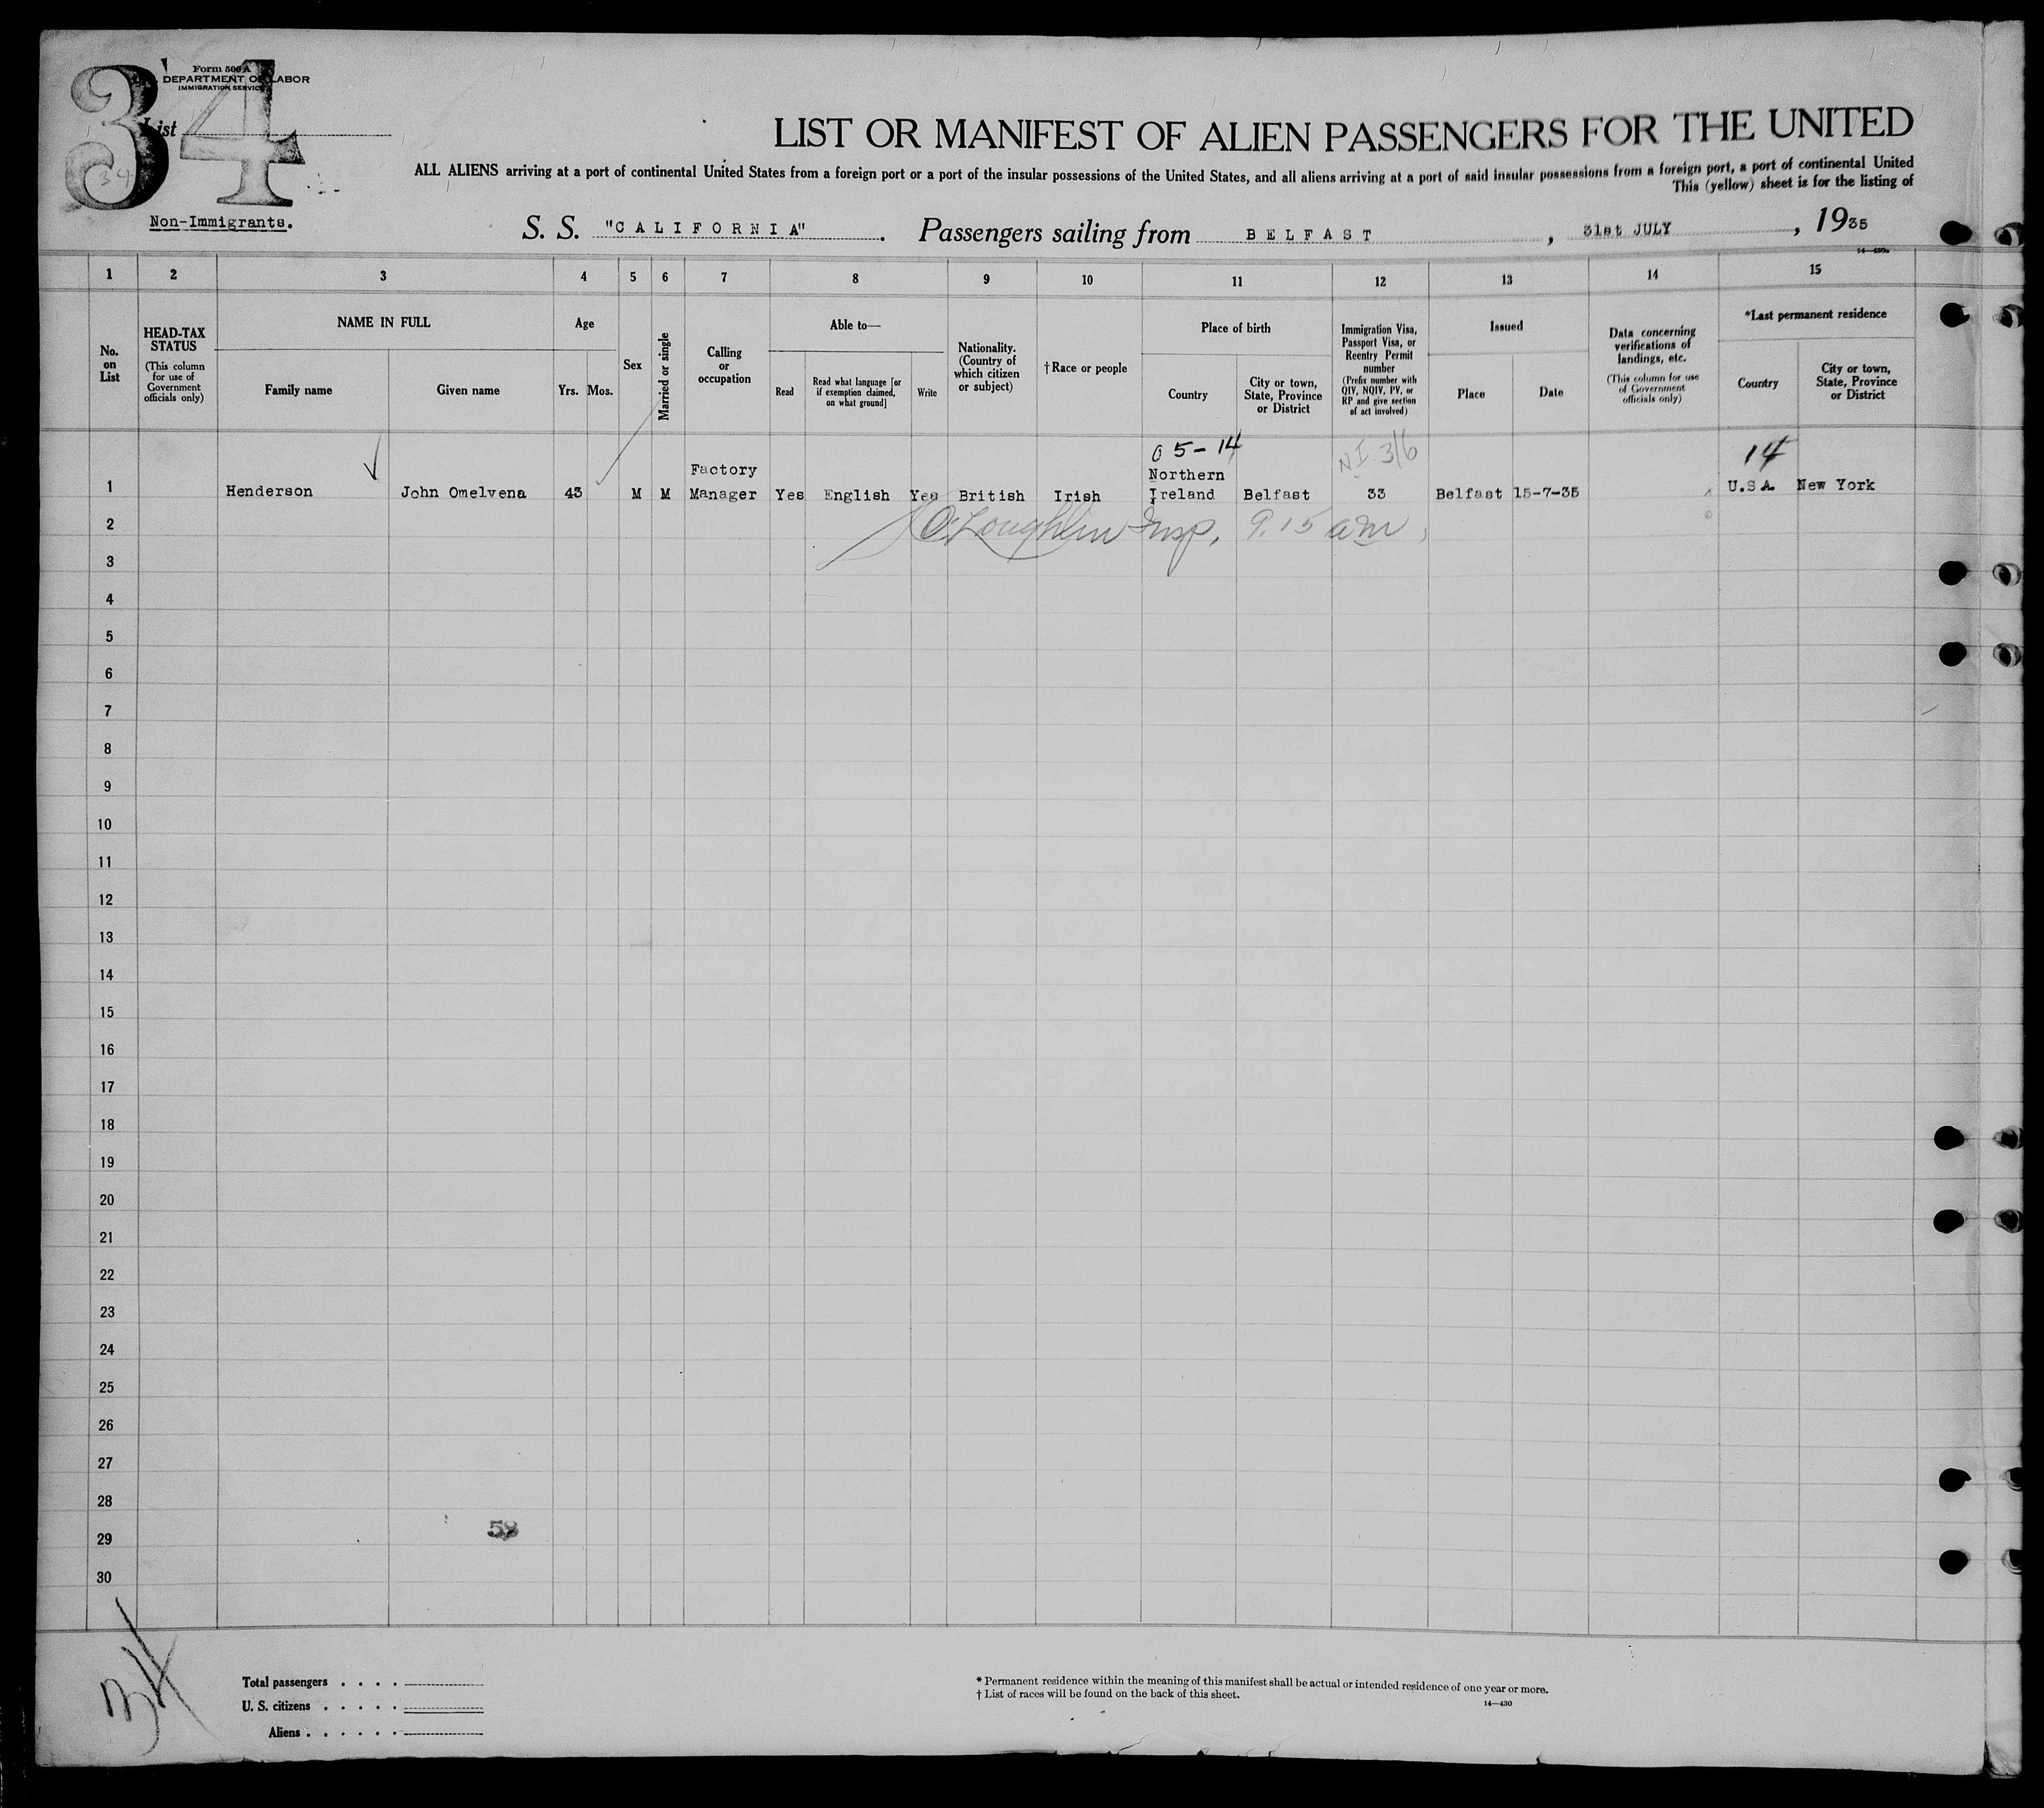 34
Form 500 A
U. S. DEPARTMENT OF LABOR
IMMIGRATION SERVICE
List
34
LIST OR MANIFEST OF ALIEN PASSENGERS FOR THE UNITED
ALL ALIENS arriving at a port of continental United States from a foreign port or a port of the insular possessions of the United States, and all aliens arriving at a port of said insular possessions from a foreign port, a port of continental United
This (yellow) sheet is for the listing of
Non-Immigrants.
S. S. "CALIFORNIA". Passengers sailing from BELFAST, 31st JULY, 1935
14—430a
1 2 3 4 5 6 7 8 9 10 11 12 13 14 15
No. on List
HEAD-TAX STATUS
(This column for use of Government officials only)
NAME IN FULL
Family name
Given name
Age
Yrs. Mos.
Sex
Married or single
Calling or occupation
Able to—
Read
Read what language [or if exemption claimed, on what ground]
Write
Nationality. (Country of which citizen or subject)
†Race or people
Place of birth
Country
City or town, State, Province or District
Immigration Visa, Passport Visa, or Reentry Permit number
(Prefix number with QIV, NQIV, PV, or RP and give section of act involved)
Issued
Place
Date
Data concerning verifications of landings, etc.
(This column for use of Government officials only)
*Last permanent residence
Country
City or town, State, Province or District
05-14
N.I. 3/6
14
Factory
Northern
1 Henderson John Omelvena 43 M M Manager Yes English Yes British Irish Ireland Belfast 33 Belfast 15-7-35 U.S.A. New York
2 O'Loughlin Insp, 9.15 am,
3
4
5
6
7
8
9
10
11
12
13
14
15
16
17
18
19
20
21
22
23
24
25
26
27
28
29
30
34
Total passengers . . . .
U. S. citizens . . . . .
Aliens . . . . . .
* Permanent residence within the meaning of this manifest shall be actual or intended residence of one year or more.
† List of races will be found on the back of this sheet.
14—430